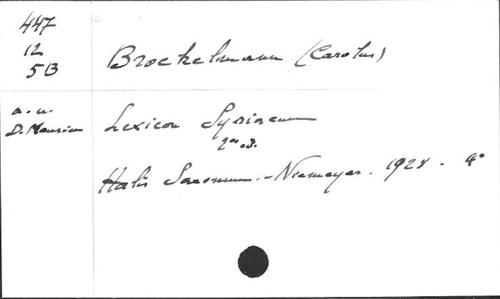 447
12
5B
Brockelmann (Carolus)
a. u.
D. Maurice
Lexicon Syriacum
2ª ed.
Halis Saxonum. - Niemeyer. 1928. 4º